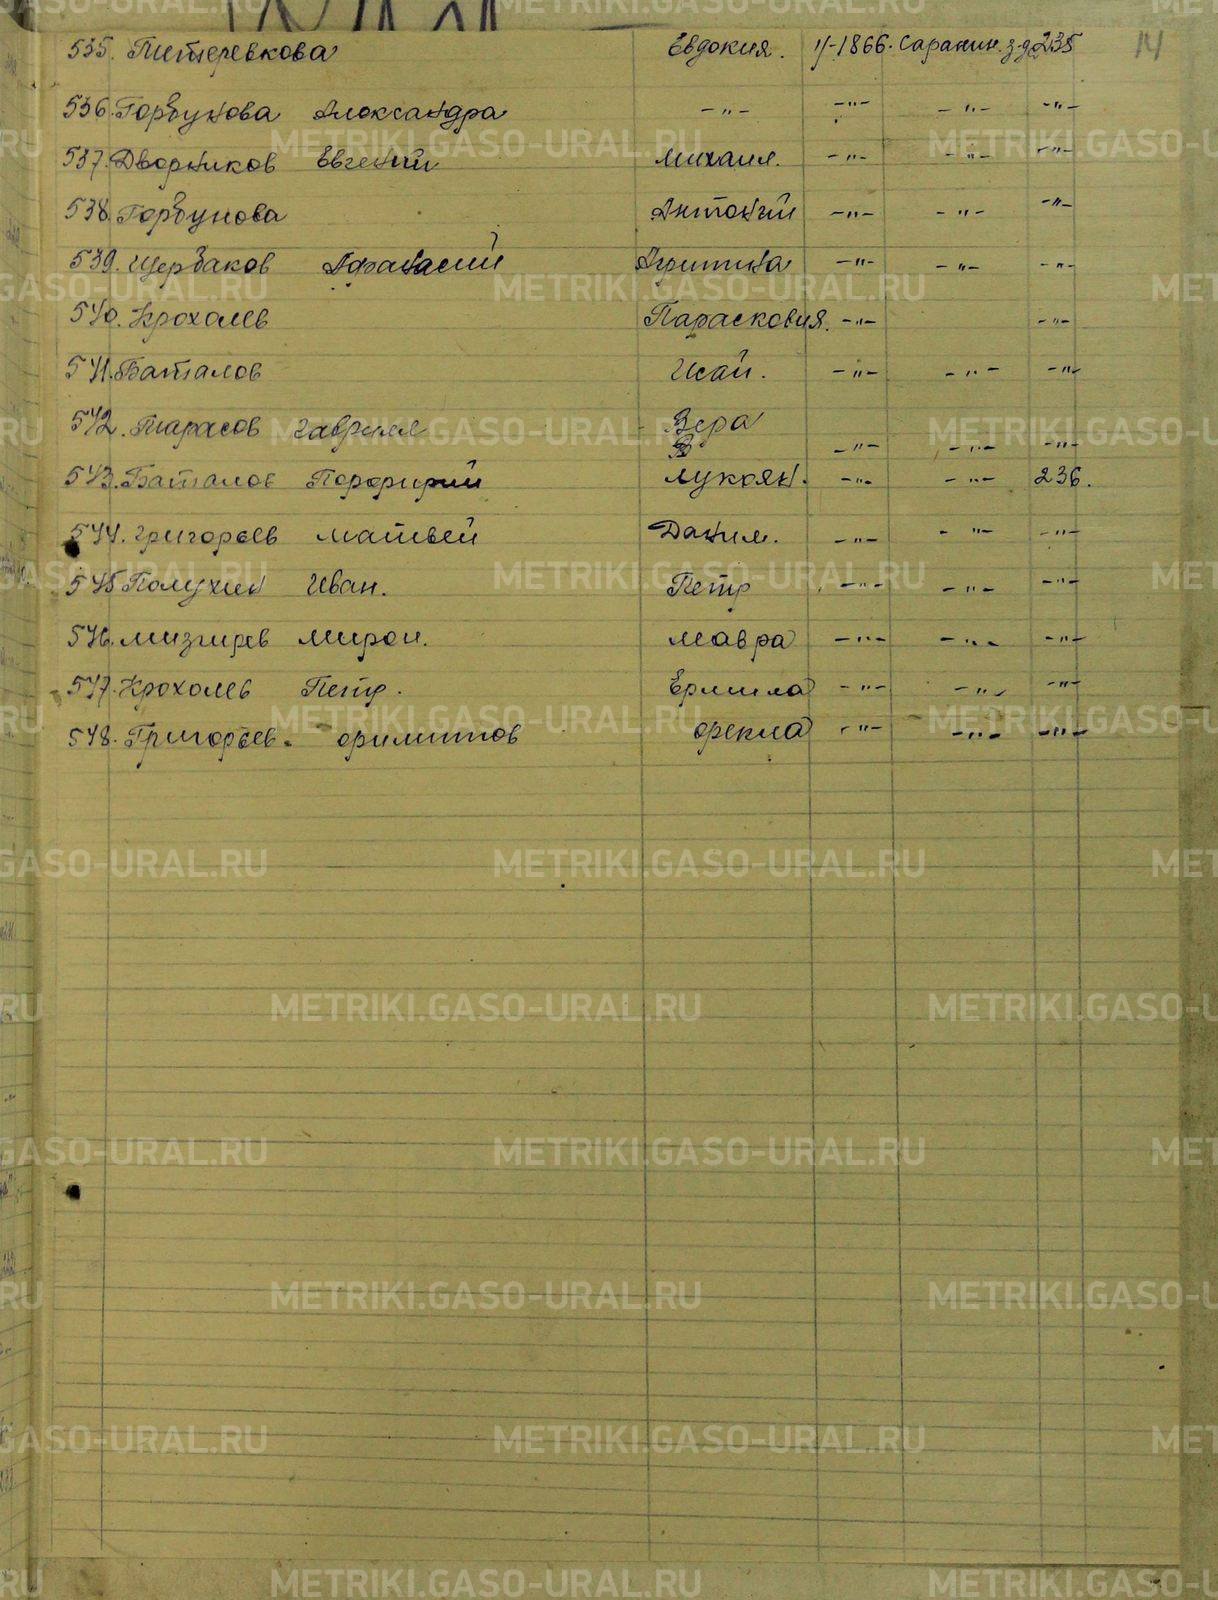 535. Питеревкова Евдокия. у-1866. Саранин. з-д 235 14
536. Горбунова Александра -"- -"- -"- -"-
537. Дворников Евгений Михаил. -"- -"- -"-
538. Горбунова Антоний -"- -"- -"-
539. Щербаков Афанасий Агрипина -"- -"- -"-
540. Крохалев Парасковия. -"- -"-
541. Баталов Исай. -"- -"- -"-
542. Тарасов Гаврил Вера -"- -"- -"-
543. Баталов Порфирий Лукоян. -"- -"- 236.
544. Григорьев Матвей Данил. -"- -"- -"-
545 Полухин Иван. Петр -"- -"- -"-
546. Мизгирев Мирон. Мавра -"- -"- -"-
547. Крохолев Петр. Ермила -"- -"- -"-
548. Григорьев. Филиппов Фекла -"- -"- -"-
METRIKI.GASO-URAL.RU